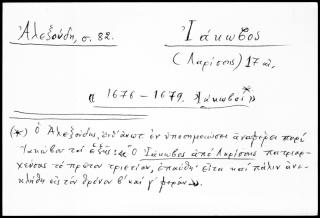 Ἀλεξούδη, σ. 82.
Ἰάκωβος
(Λαρίσσης) 17 αἰ.
« 1676 – 1679. Ἰάκωβοι* »
(*) Ὁ Ἀλεξούδης, ἐν ὑποσημειώσει ἀναφέρει περὶ
Ἰακώβου τὰ ἑξῆς: « Ὁ Ἰάκωβος ἀπὸ Λαρίσσης πατριαρ-
χεύσας τὸ πρῶτον τριετίαν, ἐπαύθη· εἶτα καὶ πάλιν ἀνε-
κλήθη εἰς τὸν θρόνον β' καὶ γ' φοράν ».